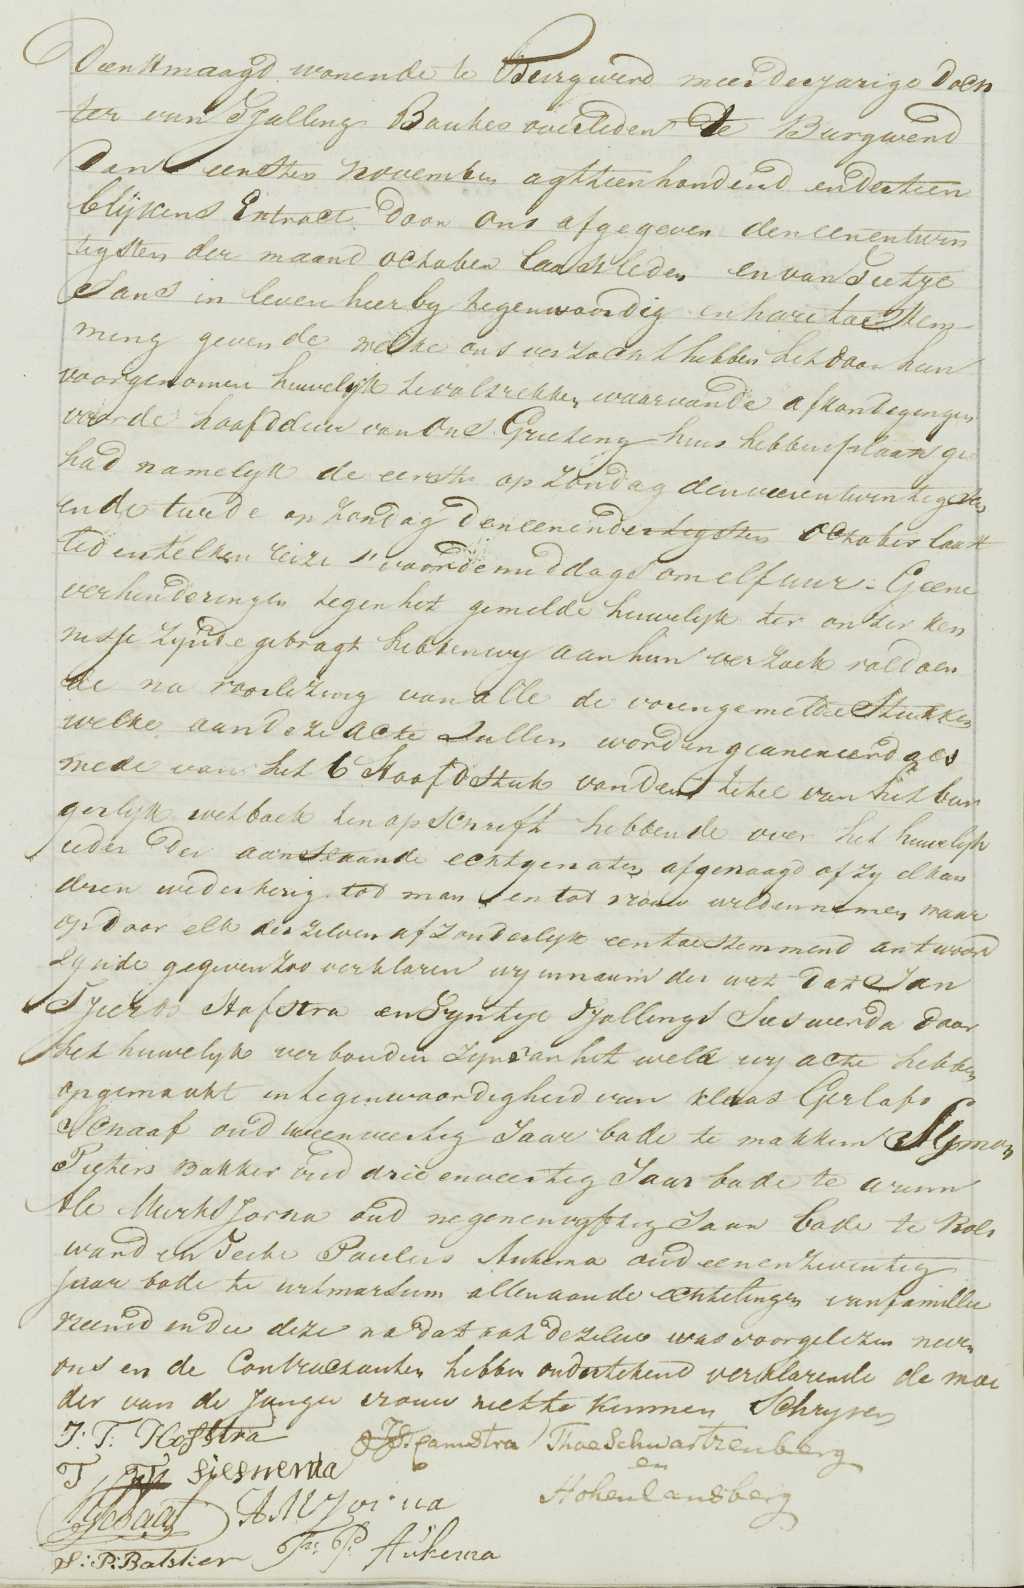 Dienstmaagd wonende te Burgwerd meerderjarige doch
ter van Tjalling Baukes overleden te Burgwerd
Den eersten November agttienhonderd en dertien
blijkens Extract door ons afgegeven den eenentwin
tigsten der maand october laastleden en van Tietje
Jans in leven hier by tegenwoordig en hare toestem
ming gevende welke ons verzocht hebben het door hun
voorgenomen huwelijk te volstrekken waarvan de afkondegingen
voor de hoofddeur van ons Grieteny huis hebben plaats ge
had namelijk de eerste op Zondag den vierentwintigsten
en de twede op Zondag den eenendertigsten october laast
leden telken reize s' voordemiddags om elf uur. Geene
verhinderingen tegen het gemelde huwelijk ter onzer ken
nisse zynde gebragt hebben wy aan hun verzoek voldoen
de na voorlezing van alle de vorengemelde Stukken
welke aan deze acte zullen worden geannexeerd als
mede van het 6 Hoofdstuk van den titel van het bur
gerlijk wetboek ten opschrift hebbende over het huwelijk
ieder der aanstaande echtgenoten afgevraagd of zy elkan
deren wederkerig tot man en tot vrouw wilden nemen waar
op door elk derzelven afzonderlijk een toestemmend antwoord
zynde gegeven zoo verklaren wy in naam der wet dat Jan
Tjeerds Hofstra en Syntje Tjallings Sieswerda door
het huwelijk verbonden zyn van het welk wy acte hebben
opgemaakt in tegenwoordigheid van Klaas Gerlofs
Schaaf oud veertig Jaar bode te makkum Symon
Piters Bakker oud drieenveertig Jaar bode te arum
Ale Murks Jorna oud negenenvyftig Jaar bode te Bols
ward en Feike Paulus Aukema oud eenenzeventig
Jaar bode te witmarsum alle naaude echtelingen van familie
vreemd en die deze na dat hat dezelve was voorgelezen neven
ons en de Contractanten hebben ondertekend verklarende de moe
der van de Jonge vrouw niet te kunnen Schryven
J: T: Hofstra
Thoe Schwartzenberg
en
Hohenlansberg
T T Sieswerda
A M Jorna
S: P: Bakker
F: P: Aukema